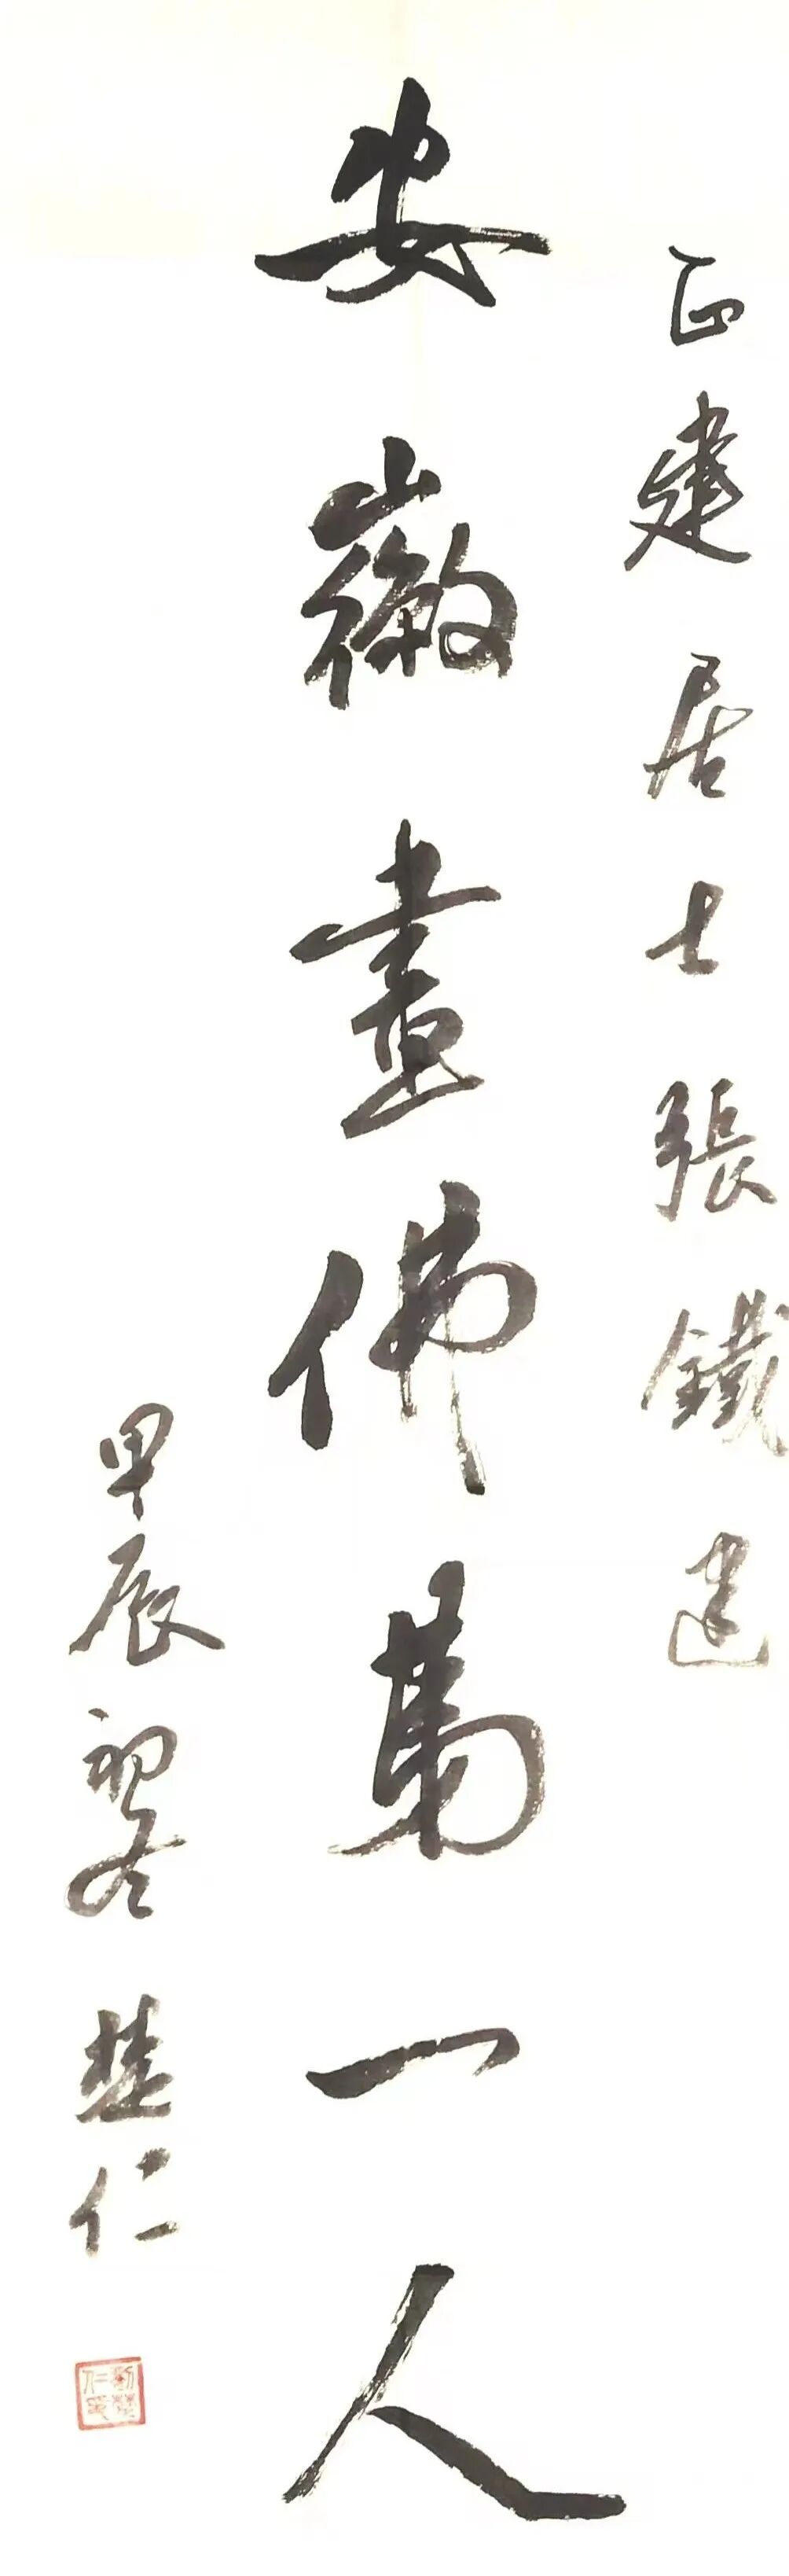 正建居士張鐵建
安徽畫佛第一人
甲辰初冬
楚仁
劉楚仁印